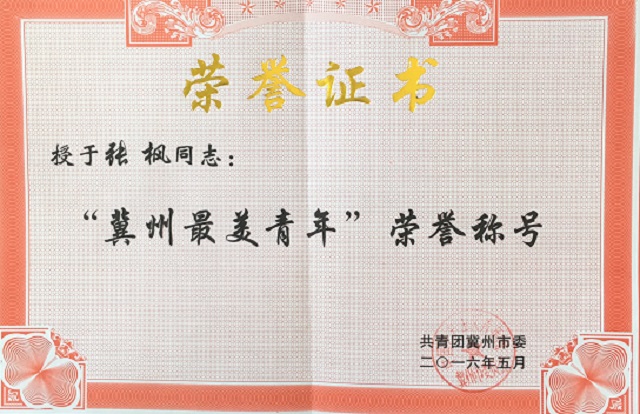 荣誉证书
授于张枫同志：
“冀州最美青年”荣誉称号
共青团冀州市委
二〇一六年五月